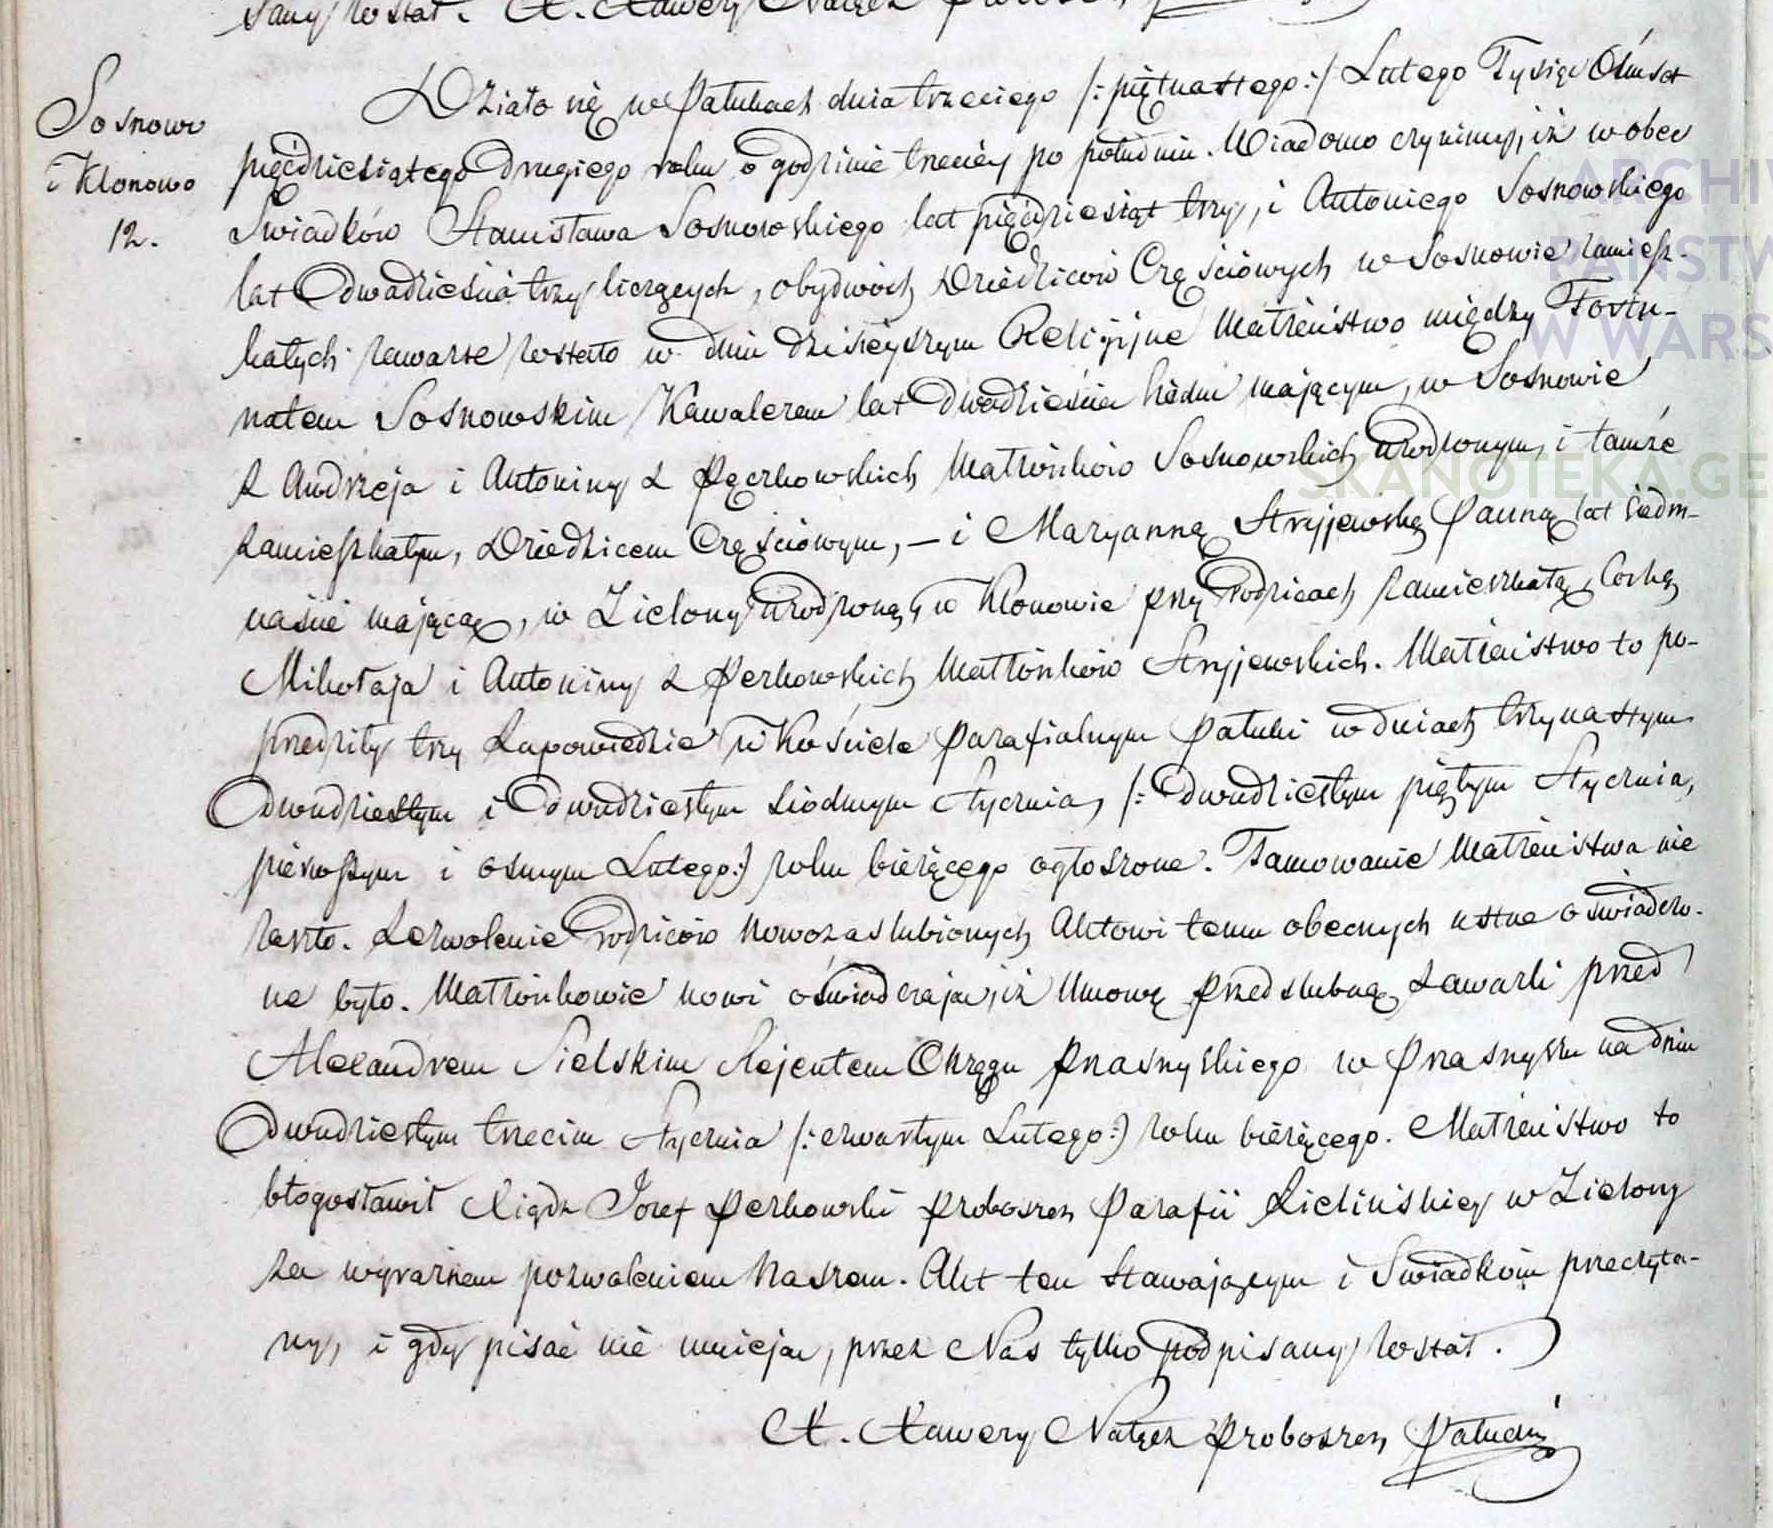 sany został. X. Xawery Nałęcz
Sosnowo
i Klonowo
12.
Działo się w Pałukach dnia trzeciego /: piętnastego :/ Lutego Tysiąc Ośmset
pięćdziesiątego drugiego roku o godzinie trzeciey po południu. Wiadomo czynimy, iż w obec
Swiadków Stanisława Sosnowskiego lat pięćdziesiąt trzy, i Antoniego Sosnowskiego
lat dwadzieścia trzy liczących, obydwóch Dziedziców Częściowych w Sosnowie zamiesz-
kałych zawarte zostało w dniu dzisieyszym Religijne Małżeństwo między Fortu-
natem Sosnowskim Kawalerem lat dwadzieścia siedm mającym, w Sosnowie
z Andrzeja i Antoniny z Pęczkowskich Małżonków Sosnowskich urodzonym, i tamże
zamieszkałym, Dziedzicem Częściowym, – i Maryanną Stryjewską Panną lat siedm-
naście mającą, w Zielony urodzoną, w Klonowie przy rodzicach zamieszkałą, Corką
Mikołaja i Antoniny z Perkowskich Małżonków Stryjewskich. Małżeństwo to po-
przedziły trzy Zapowiedzie w Kościele Parafialnym Pałuki w dniach trzynastym
dwudziestym i dwudziestym siodmym Stycznia, /: dwudziestym piątym Stycznia,
pierwszym i osmym Lutego :/ roku bieżącego ogłoszone. Tamowanie Małżeństwa nie
zaszło. Zezwolenie rodziców Nowozaslubionych Aktowi temu obecnych ustne oświadczo-
ne było. Małżonkowie nowi oświadczają, iż Umowę Przedslubną zawarli przed
Alexandrem Sielskim Rejentem Okręgu Przasnyskiego w Przasnyszu na dniu
dwudziestym trzecim Stycznia /: czwartym Lutego :/ roku bieżącego. Małżeństwo to
błogosławił Xiądz Jozef Perkowski Proboszcz Parafii Zielińskiey w Zielony
za wyraźnem pozwoleniem Naszem. Akt ten stawającym i Swiadkom przeczyta-
ny, i gdy pisać nie umieją, przez Nas tylko podpisany został.
X. Xawery Nałęcz Proboszcz Pałucki
ARCHIW
PAŃSTW
W WARS
SKANOTEKA.GE